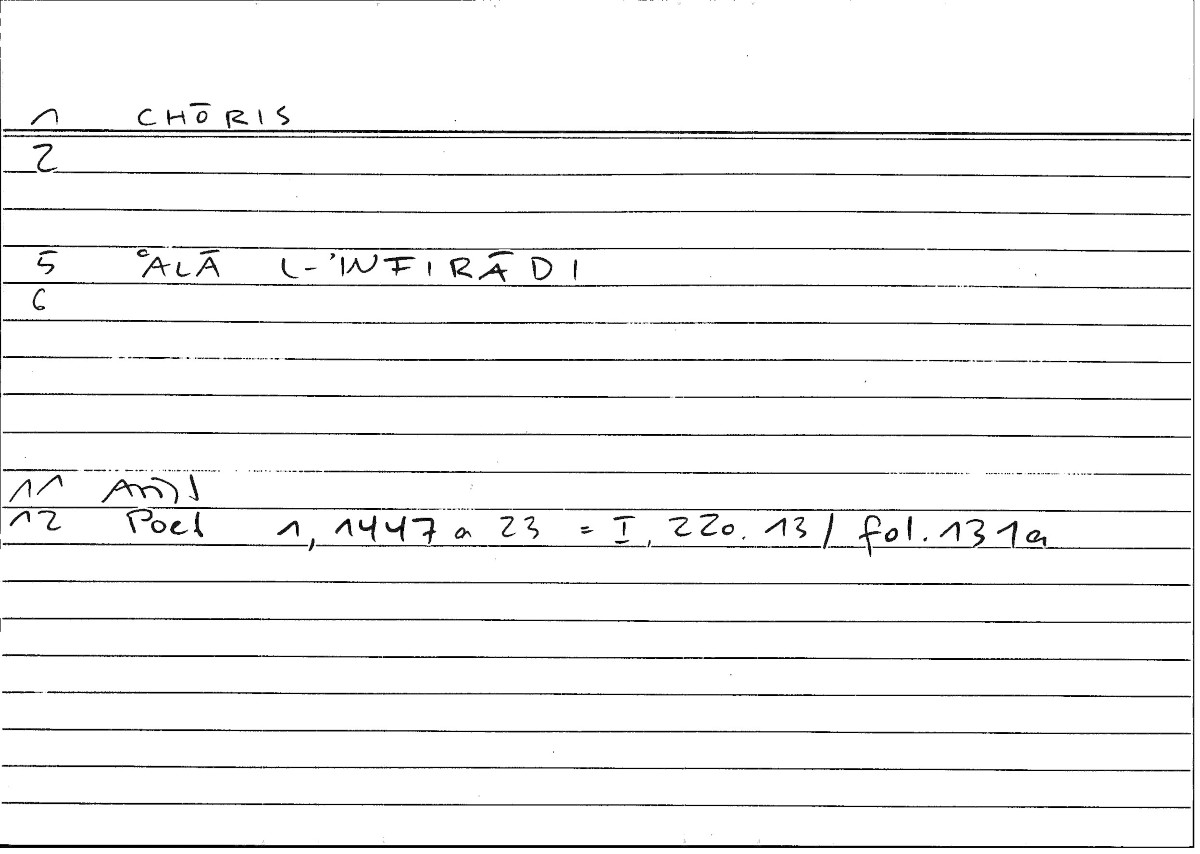 1 CHŌRIS
2
5 ʿALĀ L-ʾINFIRĀDI
6
11
12 Poet 1, 1447 a 23 = I, 220.13 / fol. 131a